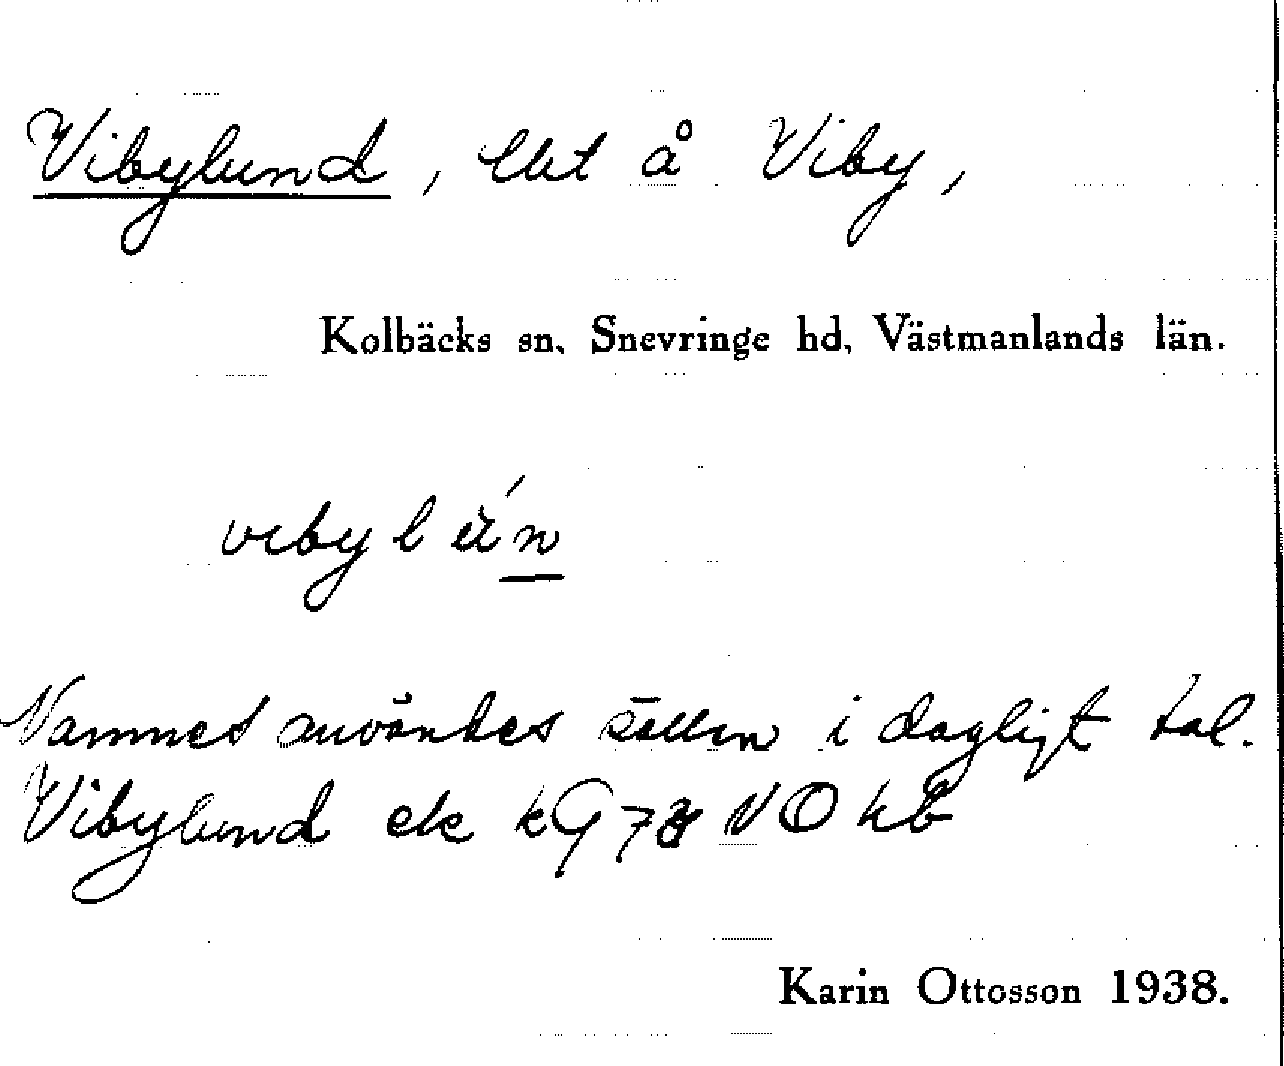 Vibylund, lht å Viby,
Kolbäcks sn, Snevringe hd, Västmanlands län.
vibylún
Namnet användes sällan i dagligt tal.
Vibylund ek kG 78 NO kb
Karin Ottosson 1938.